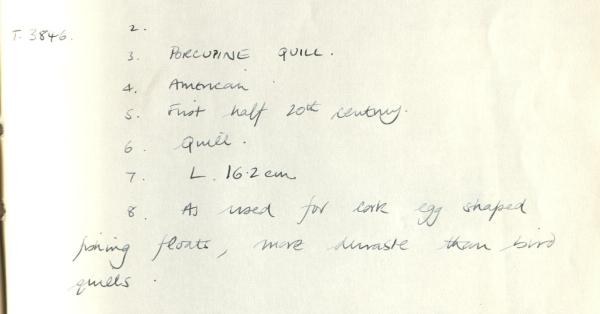 T. 3846. 2.
3. PORCUPINE QUILL.
4. American
5. First half 20th century.
6. Quill.
7. L. 16.2 cm
8. As used for cork egg shaped
fishing floats, more durable than bird
quills.